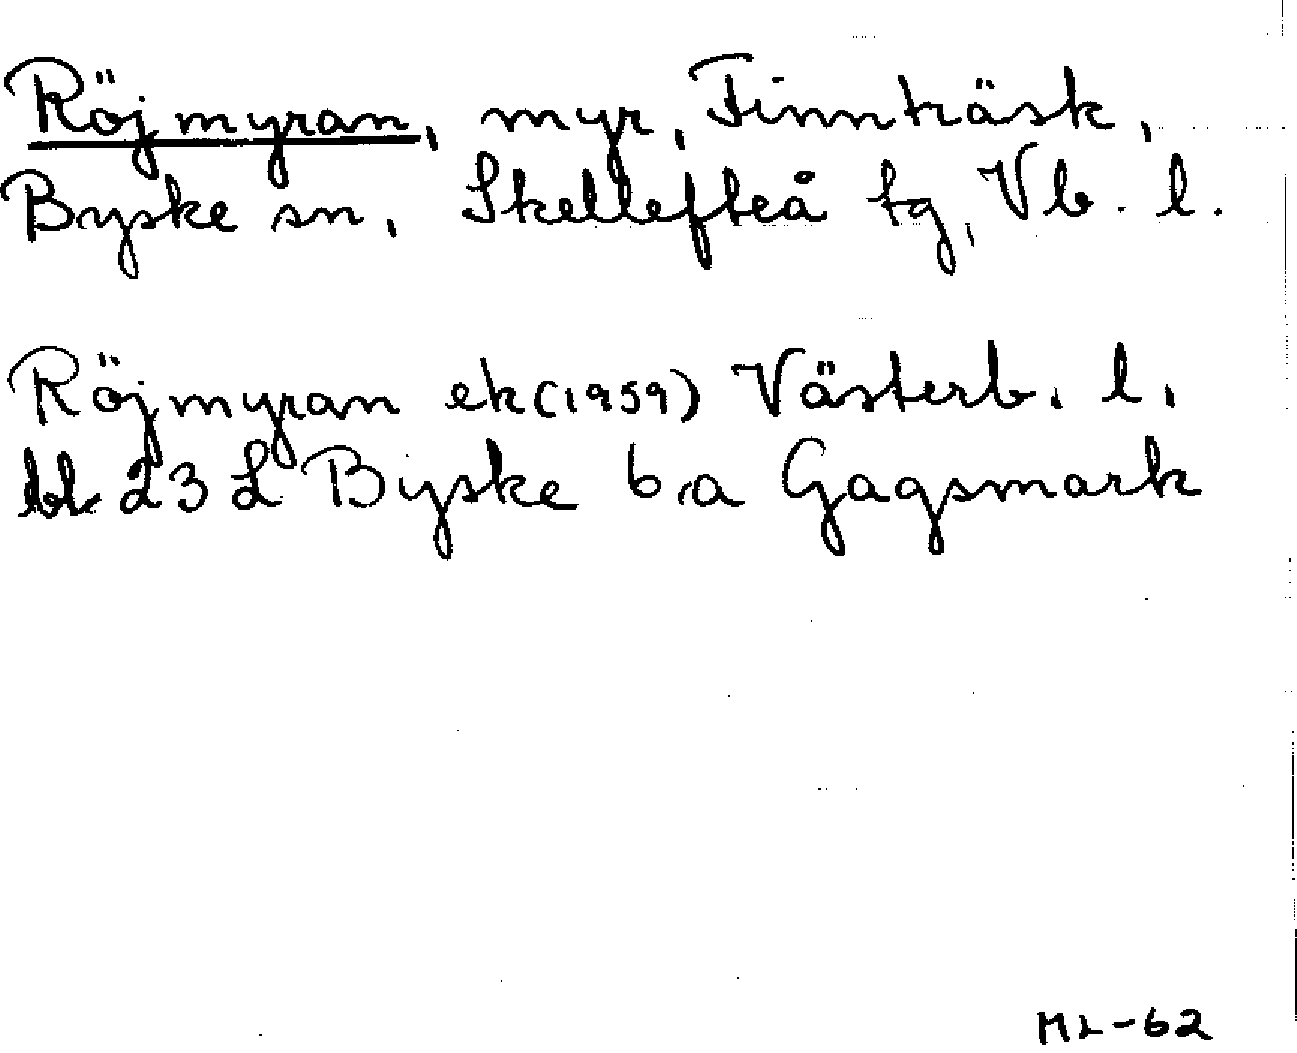 Röjmyran, myr, Finnträsk,
Byske sn, Skellefteå tg, Vb. l.
Röjmyran ek (1959) Västerb. l.
bl. 23 L Byske b,a Gagsmark
ML-62